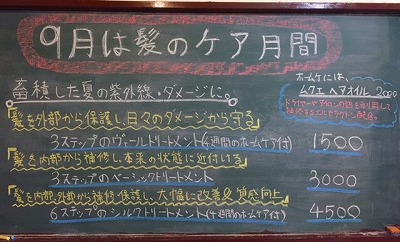 9月は髪のケア月間
ホームケアには、
ムクエ ヘアオイル 2000
ドライヤーやアイロンの熱を利用して
補修するエルカラクトン配合。
蓄積した夏の紫外線・ダメージに。
髪を外部から保護し、日々のダメージから守る
3ステップのヴェールトリートメント(4週間のホームケア付) 1500
髪を内部から補修し、本来の状態に近付ける
3ステップのベーシックトリートメント 3000
髪を内部、外部から補修・保護し、大幅に改善&質感向上
6ステップのシルクトリートメント(4週間のホームケア付) 4500